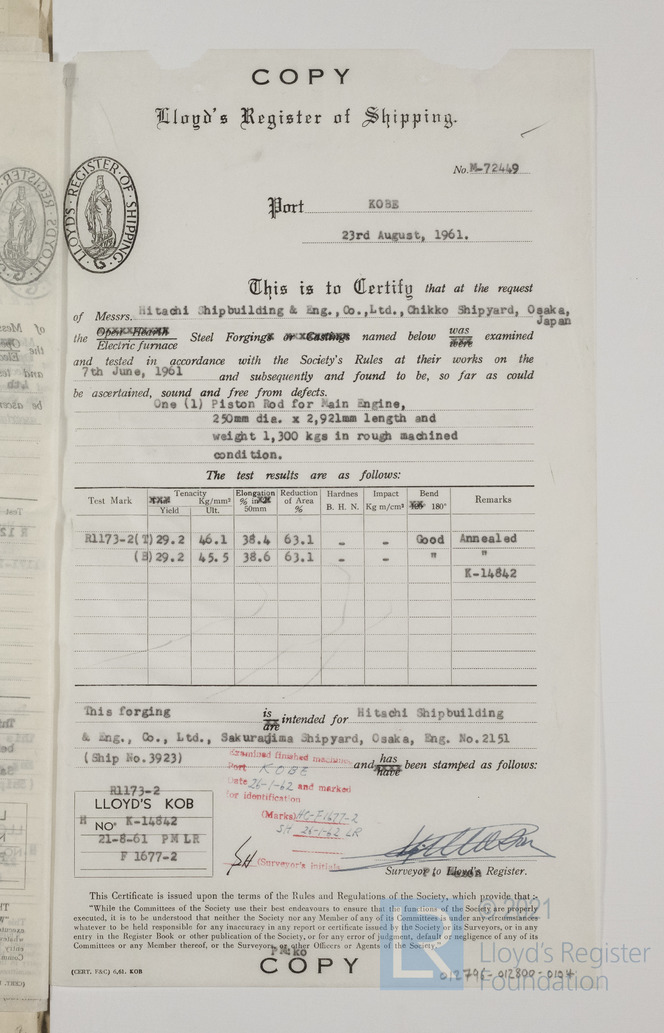 COPY
Lloyd's Register of Shipping.
No. M-72449
LLOYD'S · REGISTER · OF · SHIPPING ·
Port KOBE
23rd August, 1961.
This is to Certify that at the request
of Messrs. Hitachi Shipbuilding & Eng., Co., Ltd., Chikko Shipyard, Osaka,
Japan
the Open Hearth Electric furnace Steel Forgings or Castings named below was were examined
and tested in accordance with the Society's Rules at their works on the
7th June, 1961 and subsequently and found to be, so far as could
be ascertained, sound and free from defects.
One (1) Piston Rod for Main Engine,
250mm dia. x 2,921mm length and
weight 1,300 kgs in rough machined
condition.
The test results are as follows:
Test Mark Tenacity Kg/mm² Yield Ult. Elongation % in 50mm Reduction of Area % Hardnes B. H. N. Impact Kg m/cm² Bend 180° Remarks
R1173-2(T) 29.2 46.1 38.4 63.1 - - Good Annealed
(B) 29.2 45.5 38.6 63.1 - - " "
K-14842
This forging is are intended for Hitachi Shipbuilding
& Eng., Co., Ltd., Sakurajima Shipyard, Osaka, Eng. No.2151
(Ship No.3923) and has have been stamped as follows:
Examined finished machined
Port KOBE
Date 26-1-62 and marked
for identification
(Marks) HC-F1677-2
SH 26-1-62 LR
SH (Surveyor's initials
R1173-2
LLOYD'S KOB
H NO. K-14842
21-8-61 PM LR
F 1677-2
Surveyor to Lloyd's Register.
This Certificate is issued upon the terms of the Rules and Regulations of the Society, which provide that:-
"While the Committees of the Society use their best endeavours to ensure that the functions of the Society are properly
executed, it is to be understood that neither the Society nor any Member of any of its Committees is under any circumstances
whatever to be held responsible for any inaccuracy in any report or certificate issued by the Society or its Surveyors, or in any
entry in the Register Book or other publication of the Society, or for any error of judgment, default or negligence of any of its
Committees or any Member thereof, or the Surveyors, or other Officers or Agents of the Society."
COPY
(CERT. F&C) 6,61. KOB
012796-012800-0104
© 2021
LR
Lloyd's Register
Foundation